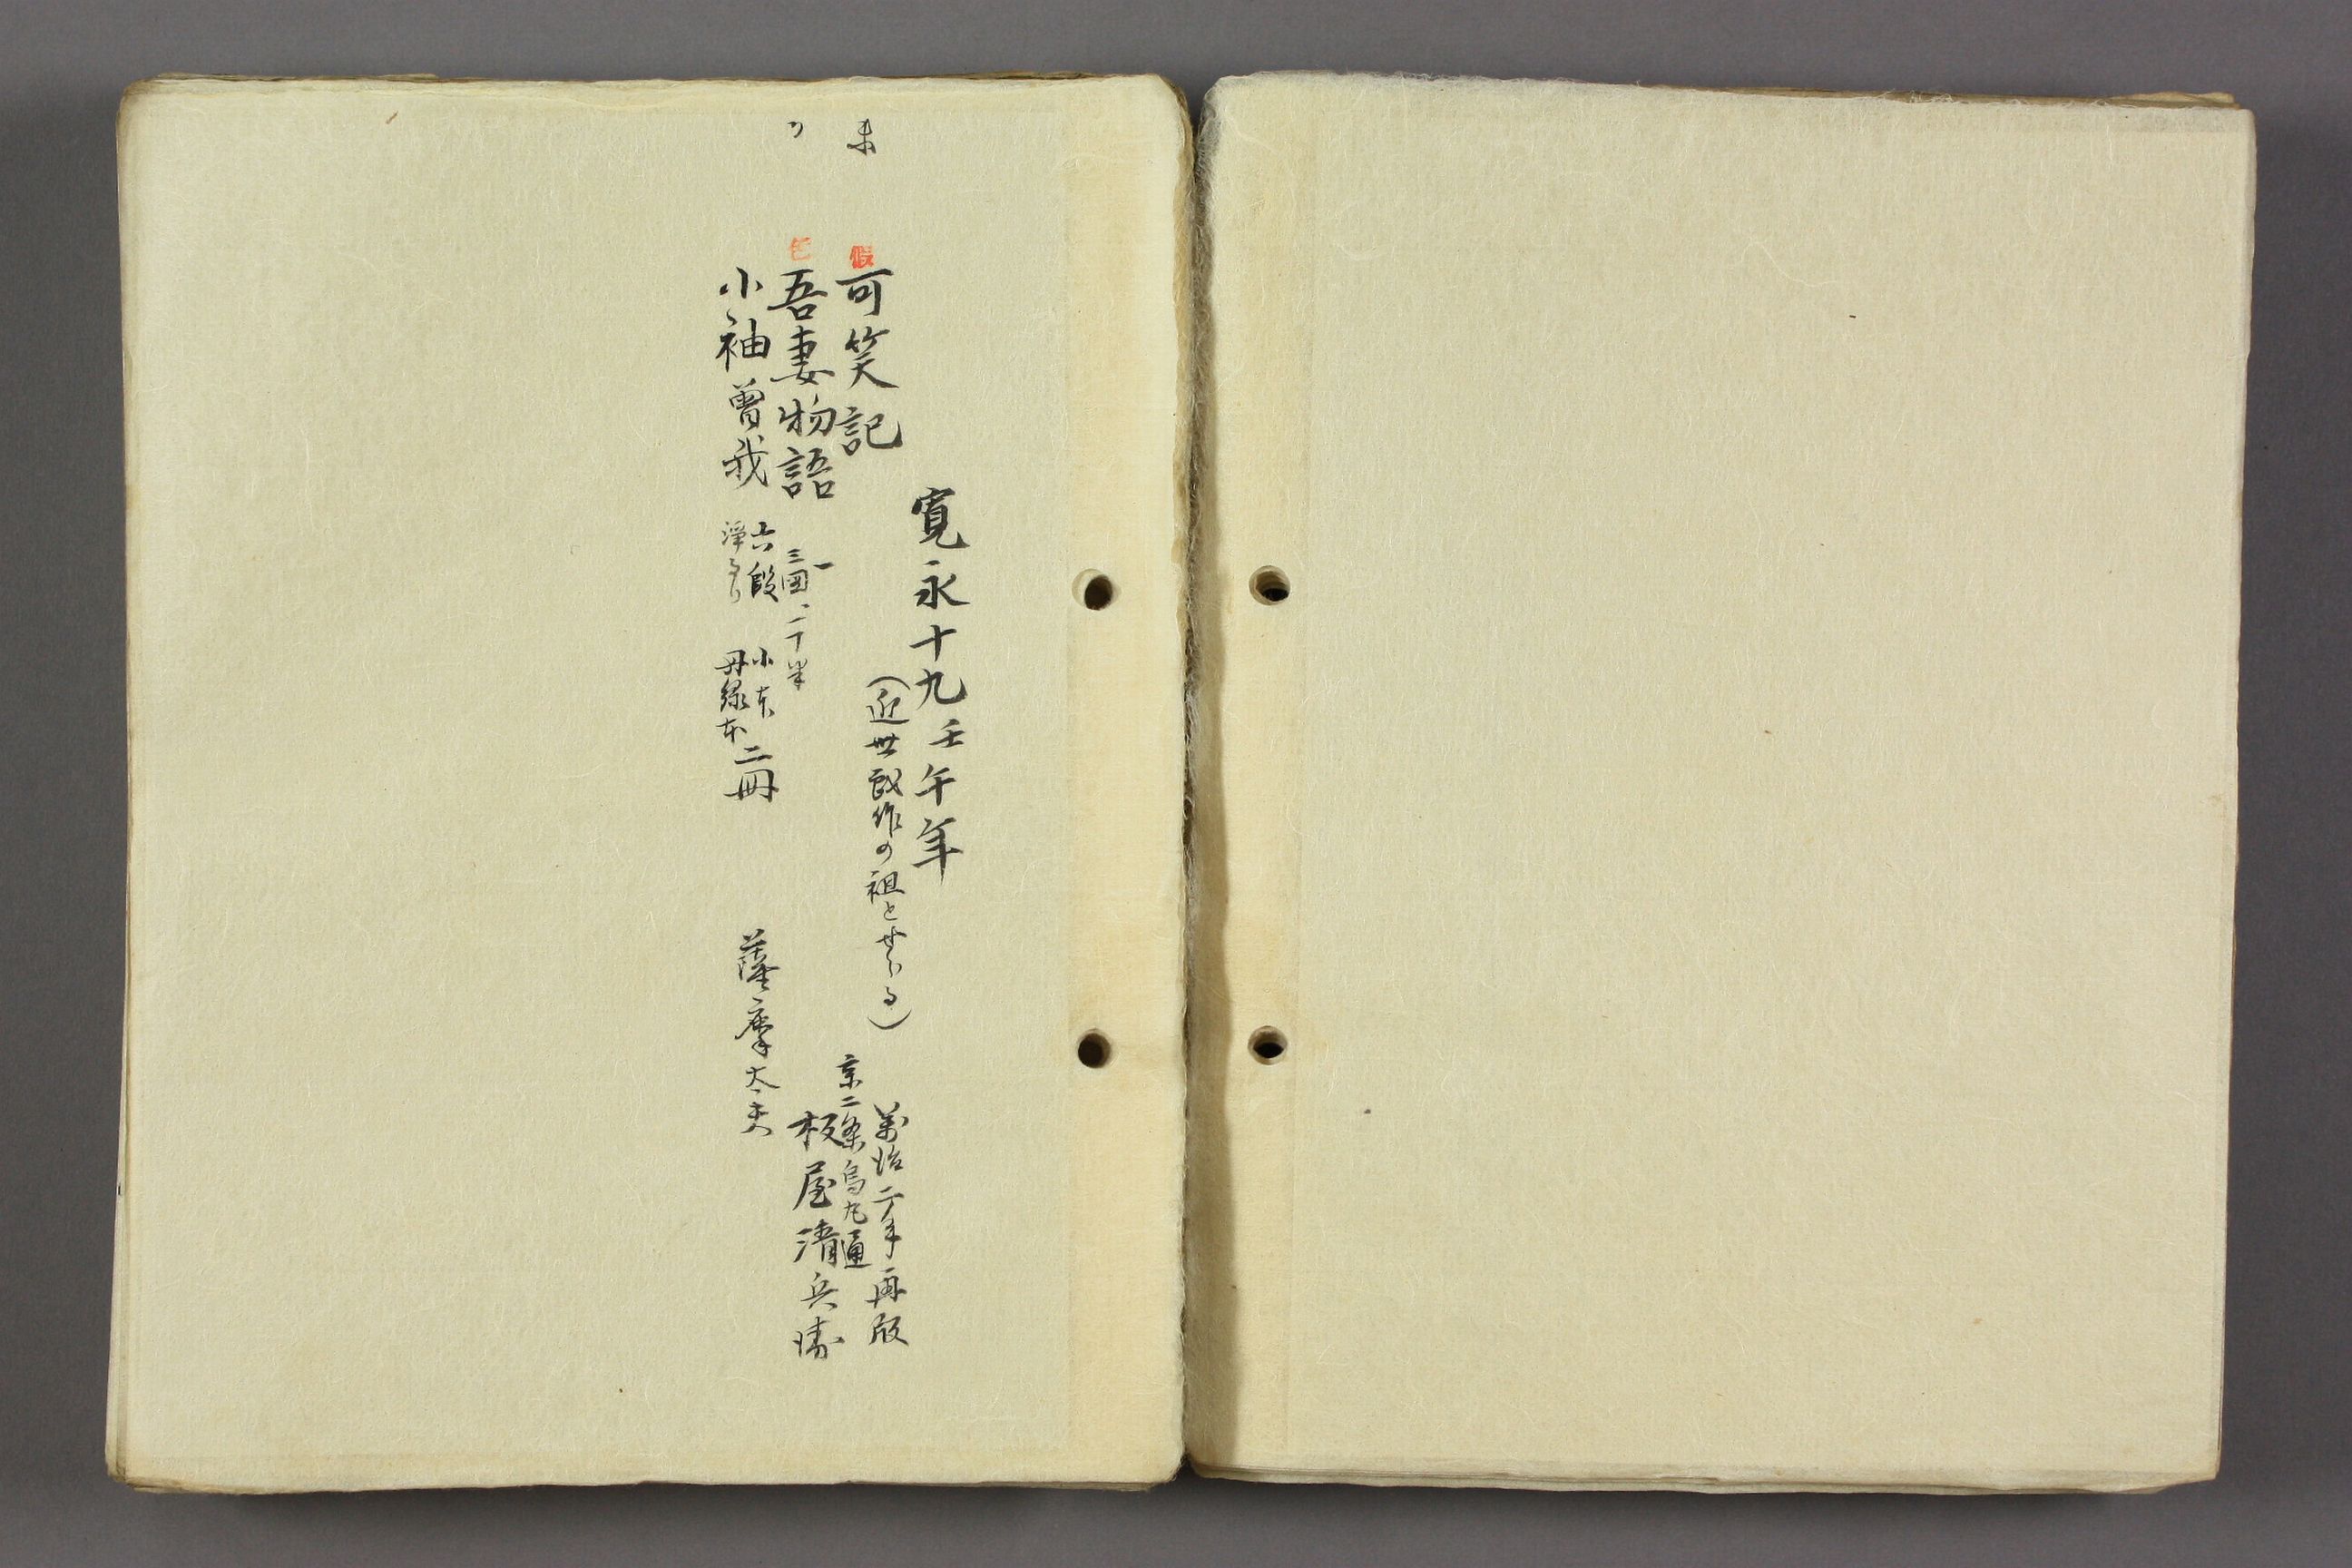 寛永十九壬午年
未
假
可笑記
(近世戯作の祖とせらる)
萬治二年再版
京二条烏丸通
板屋清兵衛
色
吾妻物語
一
三図、二十半
小袖曽我
六段
浄るり
小本
丹緑本
二冊
薩摩太夫